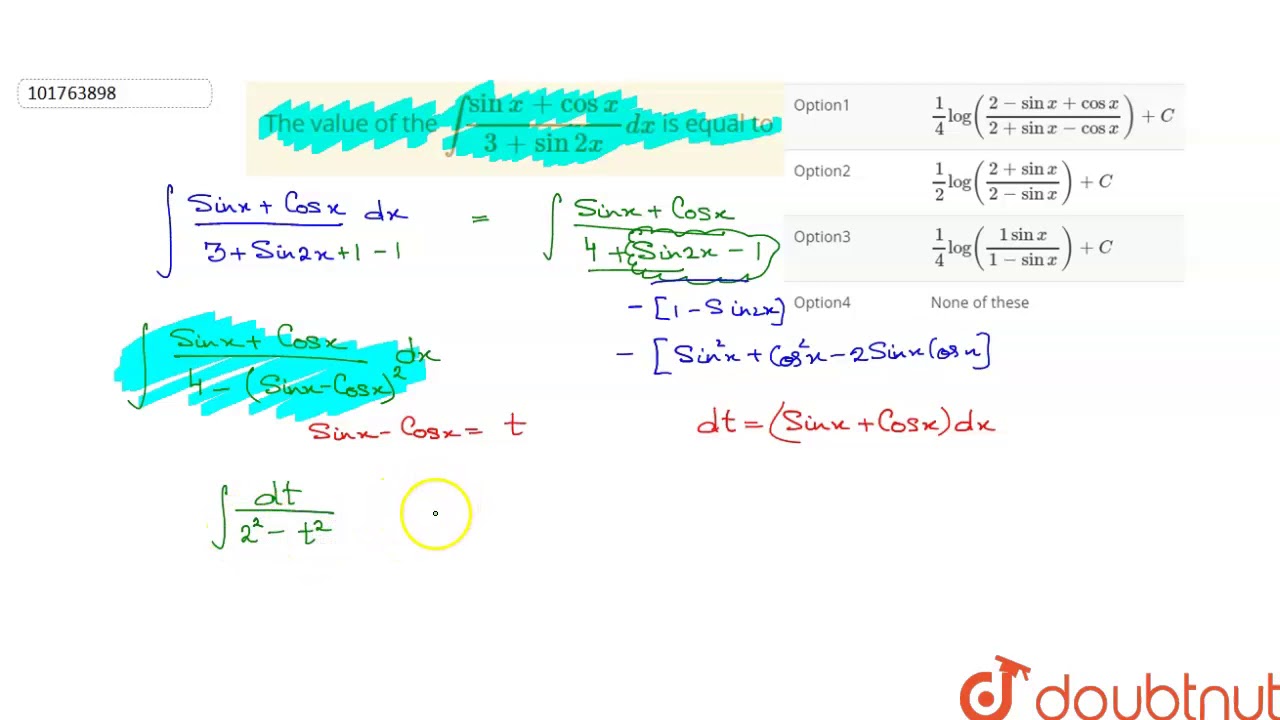 101763898
The value of the ∫ (sin x + cos x)/(3 + sin 2x) dx is equal to
Option1 1/4 log((2 − sin x + cos x)/(2 + sin x − cos x)) + C
Option2 1/2 log((2 + sin x)/(2 − sin x)) + C
Option3 1/4 log((1 sin x)/(1 − sin x)) + C
Option4 None of these
∫ (Sinx + Cosx)/(3 + Sin2x + 1 − 1) dx = ∫ (Sinx + Cosx)/(4 + (Sin2x − 1
− [1 − Sin2x]
− [Sin²x + Cos²x − 2Sinx Cosx]
∫ (Sinx + Cosx)/(4 − (Sinx − Cosx)²) dx
Sinx − Cosx = t dt = (Sinx + Cosx) dx
∫ dt/(2² − t²)
doubtnut